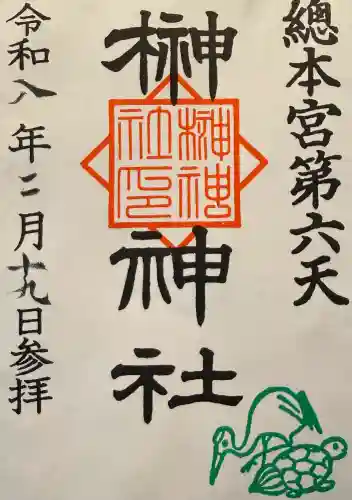 總本宮第六天
榊神社
榊神社印
令和八年二月十九日参拝